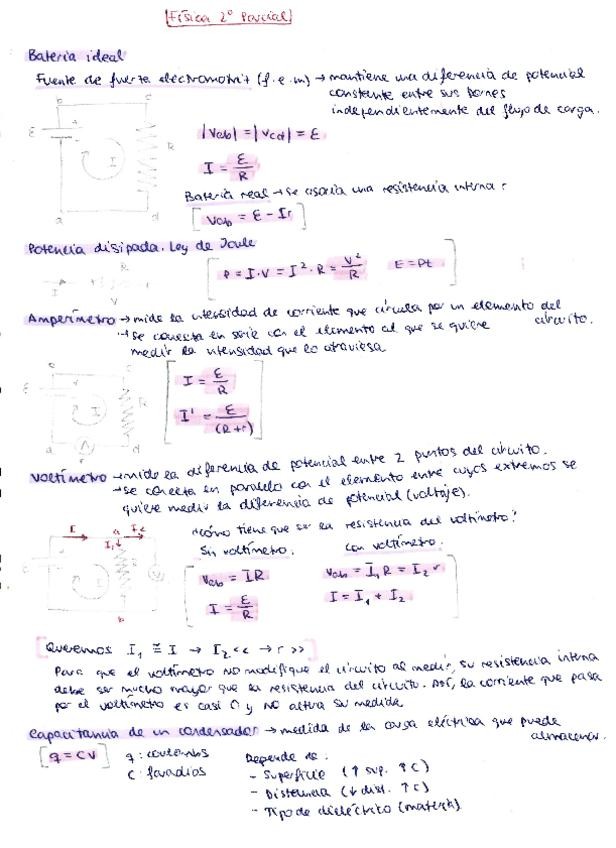 Física 2º Parcial
Batería ideal
Fuente de fuerza electromotriz (f.e.m) → mantiene una diferencia de potencial
constante entre sus bornes
independientemente del flujo de carga.
b c
ε I R
a d
|Vab| = |Vcd| = ε
I = ε/R
Batería real → se asocia una resistencia interna:
Vab = ε - Ir
Potencia disipada. Ley de Joule
I R
V
P = I·V = I²·R = V²/R E = Pt
Amperímetro → mide la intensidad de corriente que circula por un elemento del
circuito.
→ se conecta en serie con el elemento al que se quiere
medir la intensidad que lo atraviesa
ε I R
d
A
r
I = ε/R
I' = ε/(R+r)
Voltímetro → mide la diferencia de potencial entre 2 puntos del circuito.
→ se conecta en paralelo con el elemento entre cuyos extremos se
quiere medir la diferencia de potencial (voltaje).
I a I2
I1
b
¿cómo tiene que ser la resistencia del voltímetro?
Sin voltímetro. con voltímetro.
Vab = IR Vab = I1 R = I2 r
I = ε/R I = I1 + I2
Queremos I1 ≅ I → I2 << → r >>
Para que el voltímetro NO modifique el circuito al medir, su resistencia interna
debe ser mucho mayor que la resistencia del circuito. Así, la corriente que pasa
por el voltímetro es casi 0 y no altera su medida.
Capacitancia de un condensador → medida de la carga eléctrica que puede
almacenar.
q = CV q: coulombs Depende de:
C: faradios - Superficie (↑ sup. ↑ C)
- Distancia (↓ dist. ↑ C)
- Tipo de dieléctrico (material)